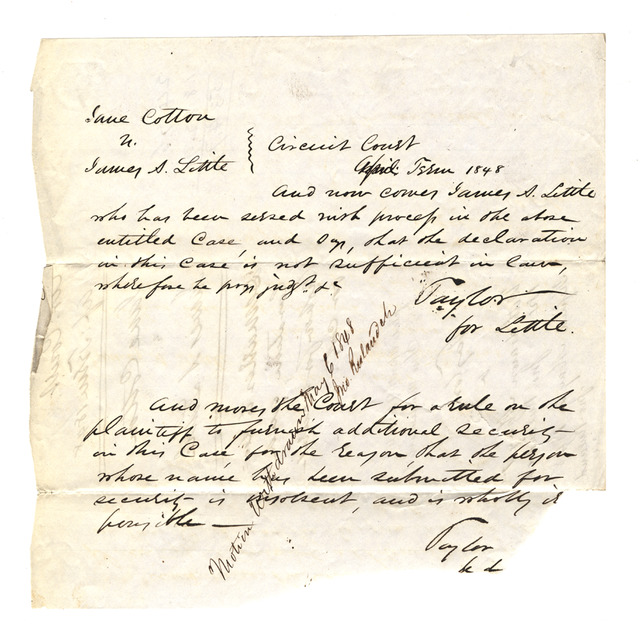 Jane Cotton
v.
James S. Little
Circuit Court
April Term 1848
And now comes James S. Little
who has been served with process in the above
entitled Case, and says, that the declaration
in this Case is not sufficient in law,
wherefore he prays judgt &c
Taylor
for Little.
And moves the Court for a rule on the
plaintiff to furnish additional security
in this Case for the reason that the person
whose name has been submitted for
security is insolvent, and is wholly
Taylor
Motion Withdrawn May 6 1848